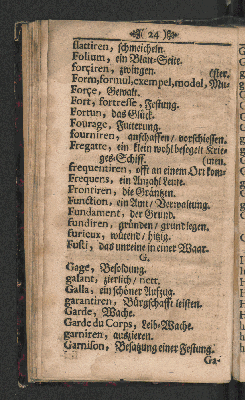 24
flattiren, schmeicheln.
Folium, ein Blatt-Seite.
forçiren, zwingen. (ster.
Form, formul, exempel, model, Mu-
Forçe, Gewalt.
Fort, fortresse, Festung.
Fortun, das Glück.
Fourage, Fütterung.
fourniren, anschaffen/ vorschiessen.
Fregatte, ein klein wohl besegelt Krie-
ges-Schiff. (men.
frequentiren, offt an einem Ort kom-
Frequens, ein Anzahl Leute.
Frontiren, die Gräntzen.
Function, ein Amt/ Verwaltung.
Fundament, der Grund.
fundiren, gründen/ grundlegen.
furieux, wütend/ hitzig.
Fusti, das unreine in einer Waar.
G.
Gage, Besoldung.
galant, zierlich/ nett.
Galla, ein schöner Aufzug.
garantiren, Bürgschafft leisten.
Garde, Wache.
Garde du Corps, Leib-Wache.
garniren, auszieren.
Garnison, Besatzung einer Festung.
Ga-